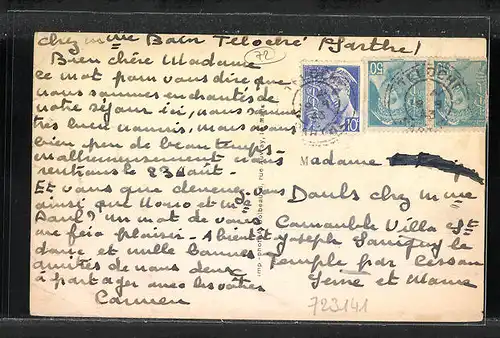 chez mme Bain Téloché (Sarthe)
72
Bien chère Madame
ce mot pour vous dire que
nous sommes enchantés de
notre séjour ici, nous sommes
très bien nourris, mais avons
bien peu de beau temps
malheureusement nous
rentrons le 23 Aout.
Et vous que devenez-vous
ainsi que Nono et mr
Paul? un mot de vous
me fera plaisir. A bientôt
et mille bonnes
amitiés de nous deux
à partager avec les vôtres
Carmen
TELOCHE
50
10
Madame
Dauls chez mme
Villa St
Joseph le
Temple par Cesson
Seine et Marne
723141